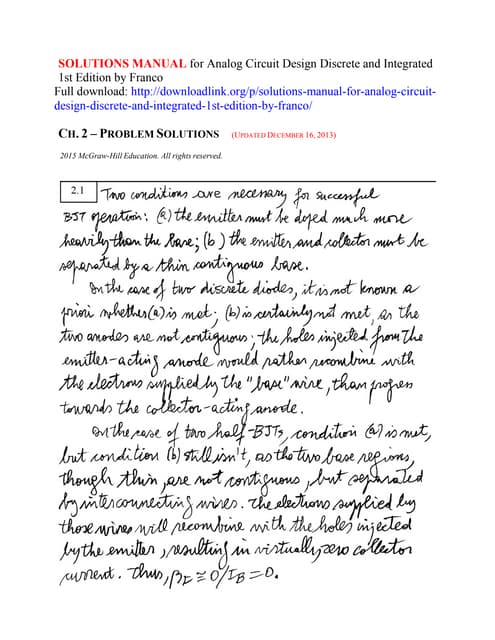 SOLUTIONS MANUAL for Analog Circuit Design Discrete and Integrated
1st Edition by Franco
Full download: http://downloadlink.org/p/solutions-manual-for-analog-circuit-
design-discrete-and-integrated-1st-edition-by-franco/
CH. 2 – PROBLEM SOLUTIONS (UPDATED DECEMBER 16, 2013)
2015 McGraw-Hill Education. All rights reserved.
2.1 Two conditions are necessary for successful
BJT operation: (a) the emitter must be doped much more
heavily than the base; (b) the emitter and collector must be
separated by a thin contiguous base.
In the case of two discrete diodes, it is not known a
priori whether (a) is met; (b) is certainly not met, as the
two anodes are not contiguous: the holes injected from the
emitter-acting anode would rather recombine with
the electrons supplied by the "base" wire, than progress
towards the collector-acting anode.
In the case of two half-BJTs, condition (a) is met,
but condition (b) still isn't, as the two base regions,
though thin, are not contiguous, but separated
by interconnecting wires. The electrons supplied by
those wires will recombine with the holes injected
by the emitter, resulting in virtually zero collector
current. Thus, βF ≅ 0/IB = 0.